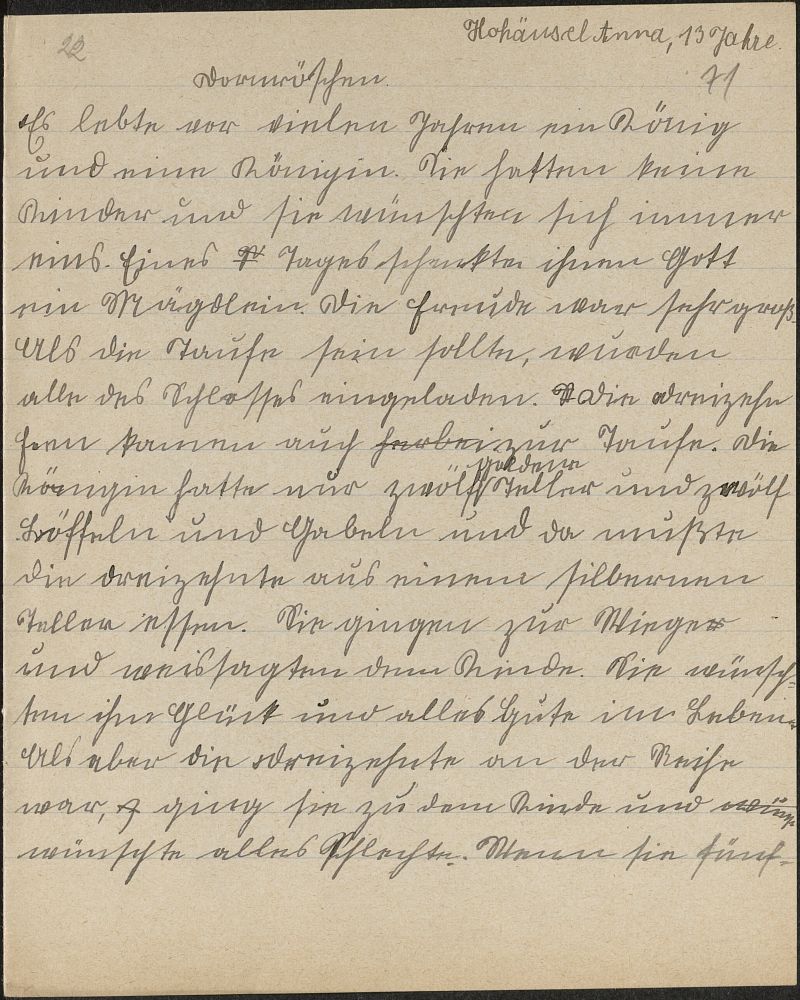 22
Hohäusel Anna, 13 Jahre.
71
Dornröschen.
Es lebte vor vielen Jahren ein König
und eine Königin. Sie hatten keine
Kinder und sie wünschten sich immer
eins. Eines T Tages schenkte ihnen Gott
ein Mägdlein. Die Freude war sehr groß.
Als die Taufe sein sollte, wurden
alle des Schlosses eingeladen. Die dreizehn
Feen kamen auch herbei zur Taufe. Die
goldene
Königin hatte nur zwölf Teller und zwölf
Löffeln und Gabeln und da mußte
die dreizehnte aus einem silbernen
Teller essen. Sie gingen zur Wieger
und weissagten dem Kinde. Sie wünsch-
ten ihm Glück und alles Gute im Leben.
Als aber die dreizehnte an der Reihe
war, ging sie zu dem Kinde und wün
wünschte alles Schlechte. Wenn sie fünf-